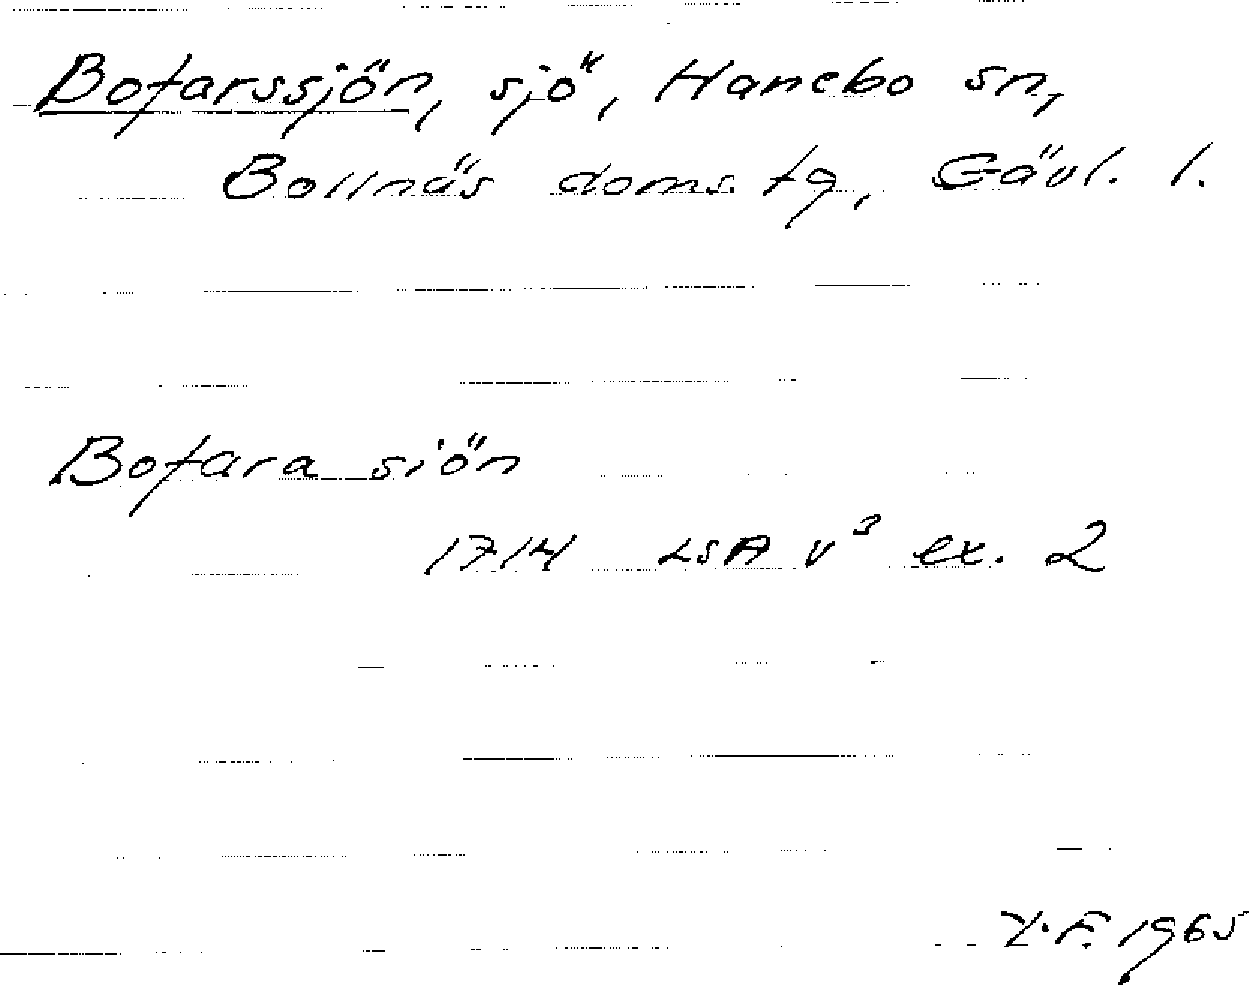 Bofarssjön, sjö, Hanebo sn,
Bollnäs doms. tg, Gävl. l.
Bofara siön
1714 LSA v³ ex. 2
Y.F. 1965